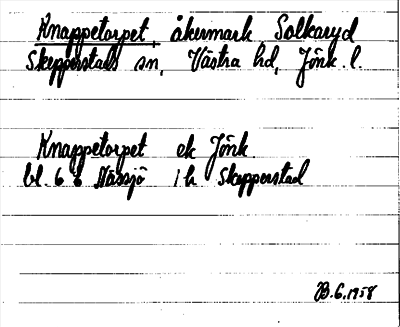 Knappetorpet, åkermark Solkaryd
Skepperstads sn, Västra hd, Jönk. l.
Knappetorpet ek Jönk.
bl. 6 6 Nässjö i k Skepperstad
B.G. 1958